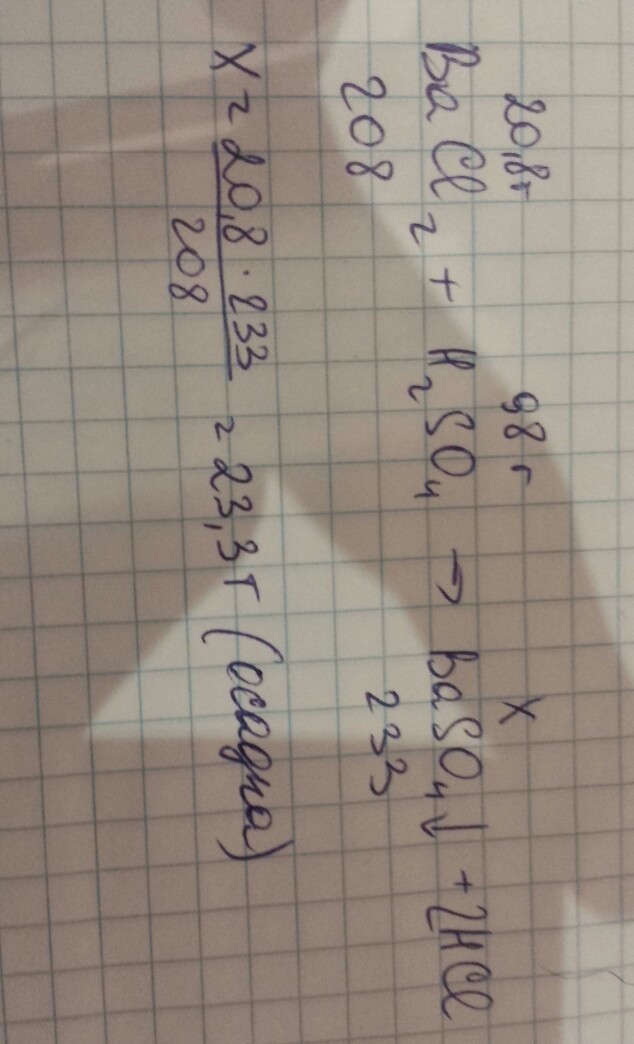 20,8г 98 г X
BaCl₂ + H₂SO₄ → BaSO₄↓ + 2HCl
208 233
X = 20,8 · 233 / 208 = 23,3г (осадка)